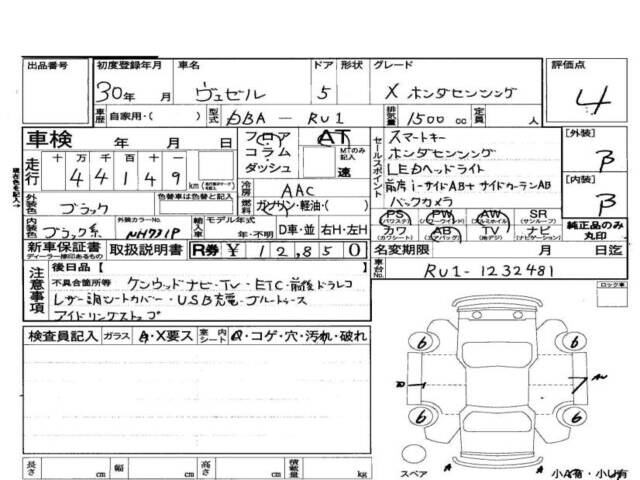 出品番号 初度登録年月 車名 ドア 形状 グレード 評価点
30年 月 ヴェゼル 5 X ホンダセンシング 4
車歴 自家用・( ) 型式 DBA - RU1 排気量 1500 cc 定員 人
車検 年 月 日 フロア コラム ダッシュ AT MTのみ記入 速
セールスポイント スマートキー
ホンダセンシング
LEDヘッドライト
前席 i-サイドAB+サイドカーテンAB
バックカメラ
[外装] B
[内装] B
走行 十 万 千 百 十 一
44149 km
冷房 AAC
外装色 ブラック 色替車は色替と記入 燃料 ガソリン・軽油・( )
PS (パワステ) PW (パワーウィンドウ) AW (アルミホイル) SR (サンルーフ)
カワ (カワシート) AB (エアバッグ) TV (地デジ) ナビ (ナビゲーション)
純正品のみ丸印
内装色 ブラック系 外装カラーNo. NH731P 輸入車 モデル年式 年・不明 D車・並 右H・左H
新車保証書 ディーラー捺印あるもの 取扱説明書 R券 ¥ 12,850 名変期限 月 日迄
注意事項 後日品[ ] 車台No. RU1-1232481
不具合箇所等 ケンウッドナビ・TV・ETC・前後ドラレコ
レザー調シートカバー・USB充電・ブルートゥース
アイドリングストップ
ロック車
検査員記入 ガラス A・X要ス 室内シート Q・コゲ・穴・汚れ・破れ
6 6
6 6
A A
長さ cm 幅 cm 高さ cm 積載量 kg
スペア 小A有・小U有